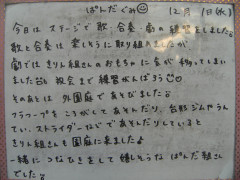 ぱんだぐみ☺ 12月1日(水)
今日はステージで歌、合奏、劇の練習をしました
歌と合奏は楽しそうに取り組めましたが
劇ではきりん組さんのおもちゃに気が移ってしまい
ました 発表会まで練習がんばろう
そのあとは外園庭であそびました
フラフープをころがしてあそんだり、台形ジムやうん
てい、ストライダーなどであそんだりしていると
きりん組さんも園庭に来ました♪
一緒につなひきをして嬉しそうなぱんだ組さん
でした